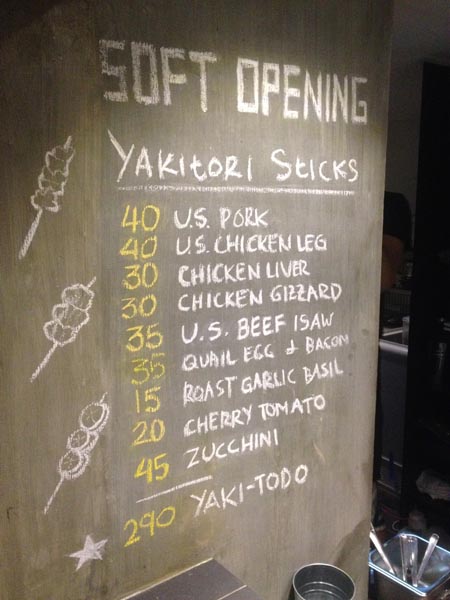 SOFT OPENING
YAKITORI STICKS
40 U.S. PORK
40 U.S. CHICKEN LEG
30 CHICKEN LIVER
30 CHICKEN GIZZARD
35 U.S. BEEF ISAW
35 QUAIL EGG & BACON
15 ROAST GARLIC BASIL
20 CHERRY TOMATO
45 ZUCCHINI
290 YAKI-TODO